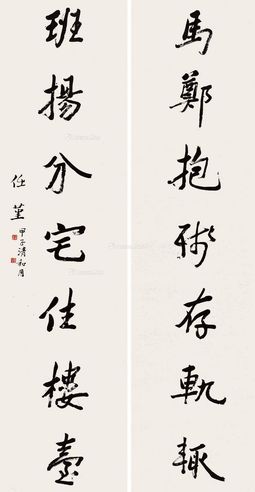 馬鄭抱術存軌輙
班揚分宅住樓臺
任堇
甲子清和月